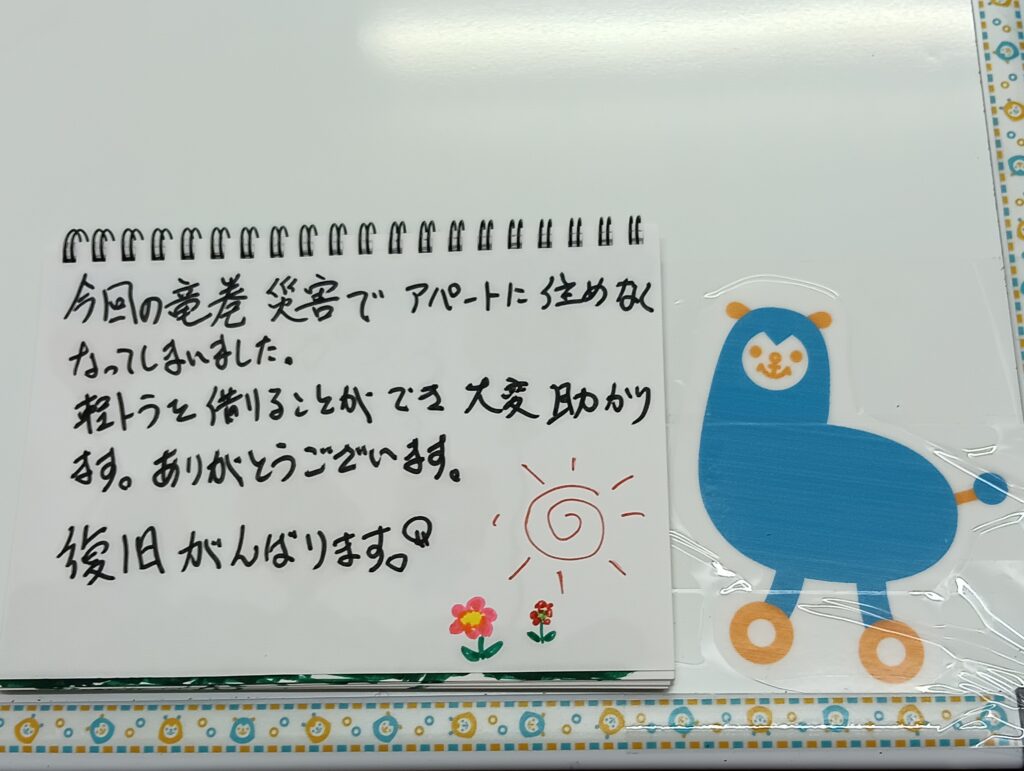 今回の竜巻災害でアパートに住めなく
なってしまいました。
軽トラを借りることができ大変助かり
ます。ありがとうございます。
復旧がんばります。